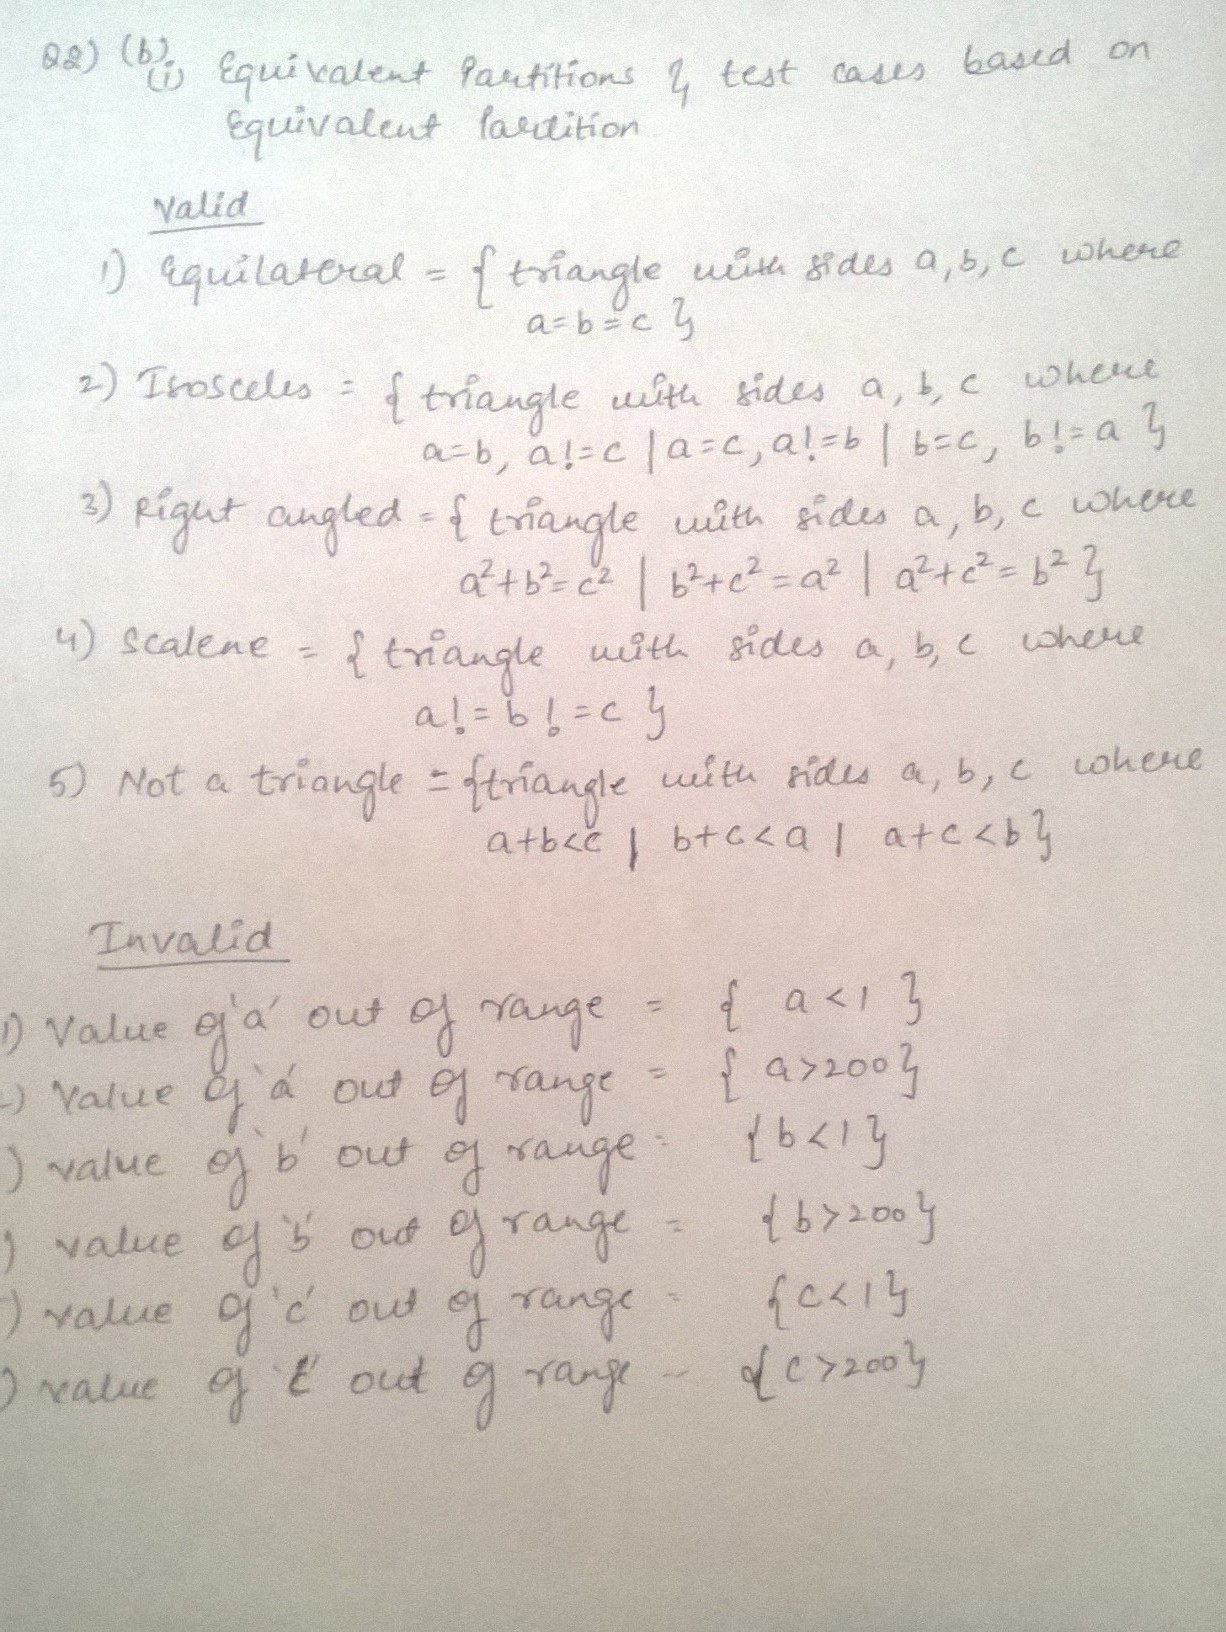 Q2) (b)
(i) Equivalent Partitions & test cases based on
Equivalent Partition
Valid
1) Equilateral = { triangle with sides a, b, c where
a=b=c }
2) Isosceles = { triangle with sides a, b, c where
a=b, a!=c | a=c, a!=b | b=c, b!=a }
3) Right angled = { triangle with sides a, b, c where
a²+b²=c² | b²+c²=a² | a²+c²=b² }
4) Scalene = { triangle with sides a, b, c where
a!=b!=c }
5) Not a triangle = {triangle with sides a, b, c where
a+b<c | b+c<a | a+c<b}
Invalid
1) Value of 'a' out of range = { a<1 }
) Value of 'a' out of range = { a>200}
) value of 'b' out of range = {b<1}
) value of 'b' out of range = {b>200}
) value of 'c' out of range = {c<1}
) value of 'c' out of range = {c>200}